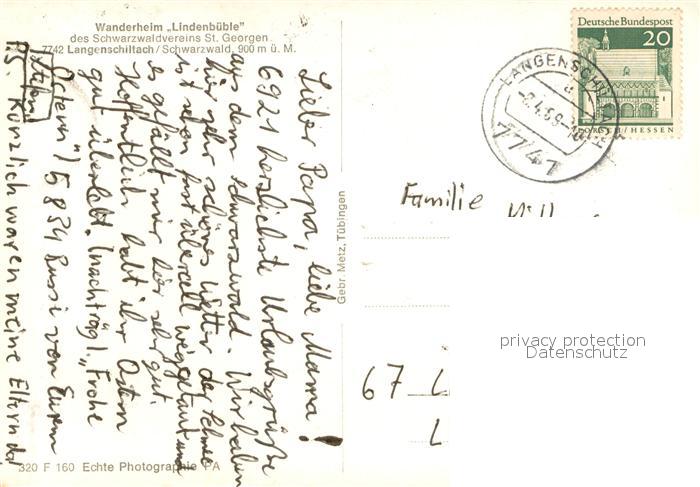 Wanderheim „Lindenbüble"
des Schwarzwaldvereins St. Georgen
7742 Langenschiltach/Schwarzwald, 900 m ü. M.
Lieber Papa, liebe Mama!
6921 herzlichste Urlaubsgrüße
aus dem Schwarzwald. Wir haben
hier sehr schönes Wetter der Schnee
ist schon fast überall weggetaut und
es gefällt mir hier sehr gut.
Hoffentlich habt ihr Ostern
gut überlebt. (nachträgl. „Frohe
Ostern")! 5834 Bussi von Eurem
P.S. Kürzlich waren meine Eltern da!
Gebr. Metz, Tübingen
320 F 160 Echte Photographie PA
Deutsche Bundespost
20
LORSCH/HESSEN
7741
Familie
67
privacy protection
Datenschutz